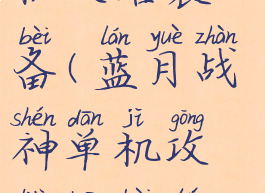 bèi lán yuè zhàn
备(蓝月战
shén dān jī gōng
神单机攻